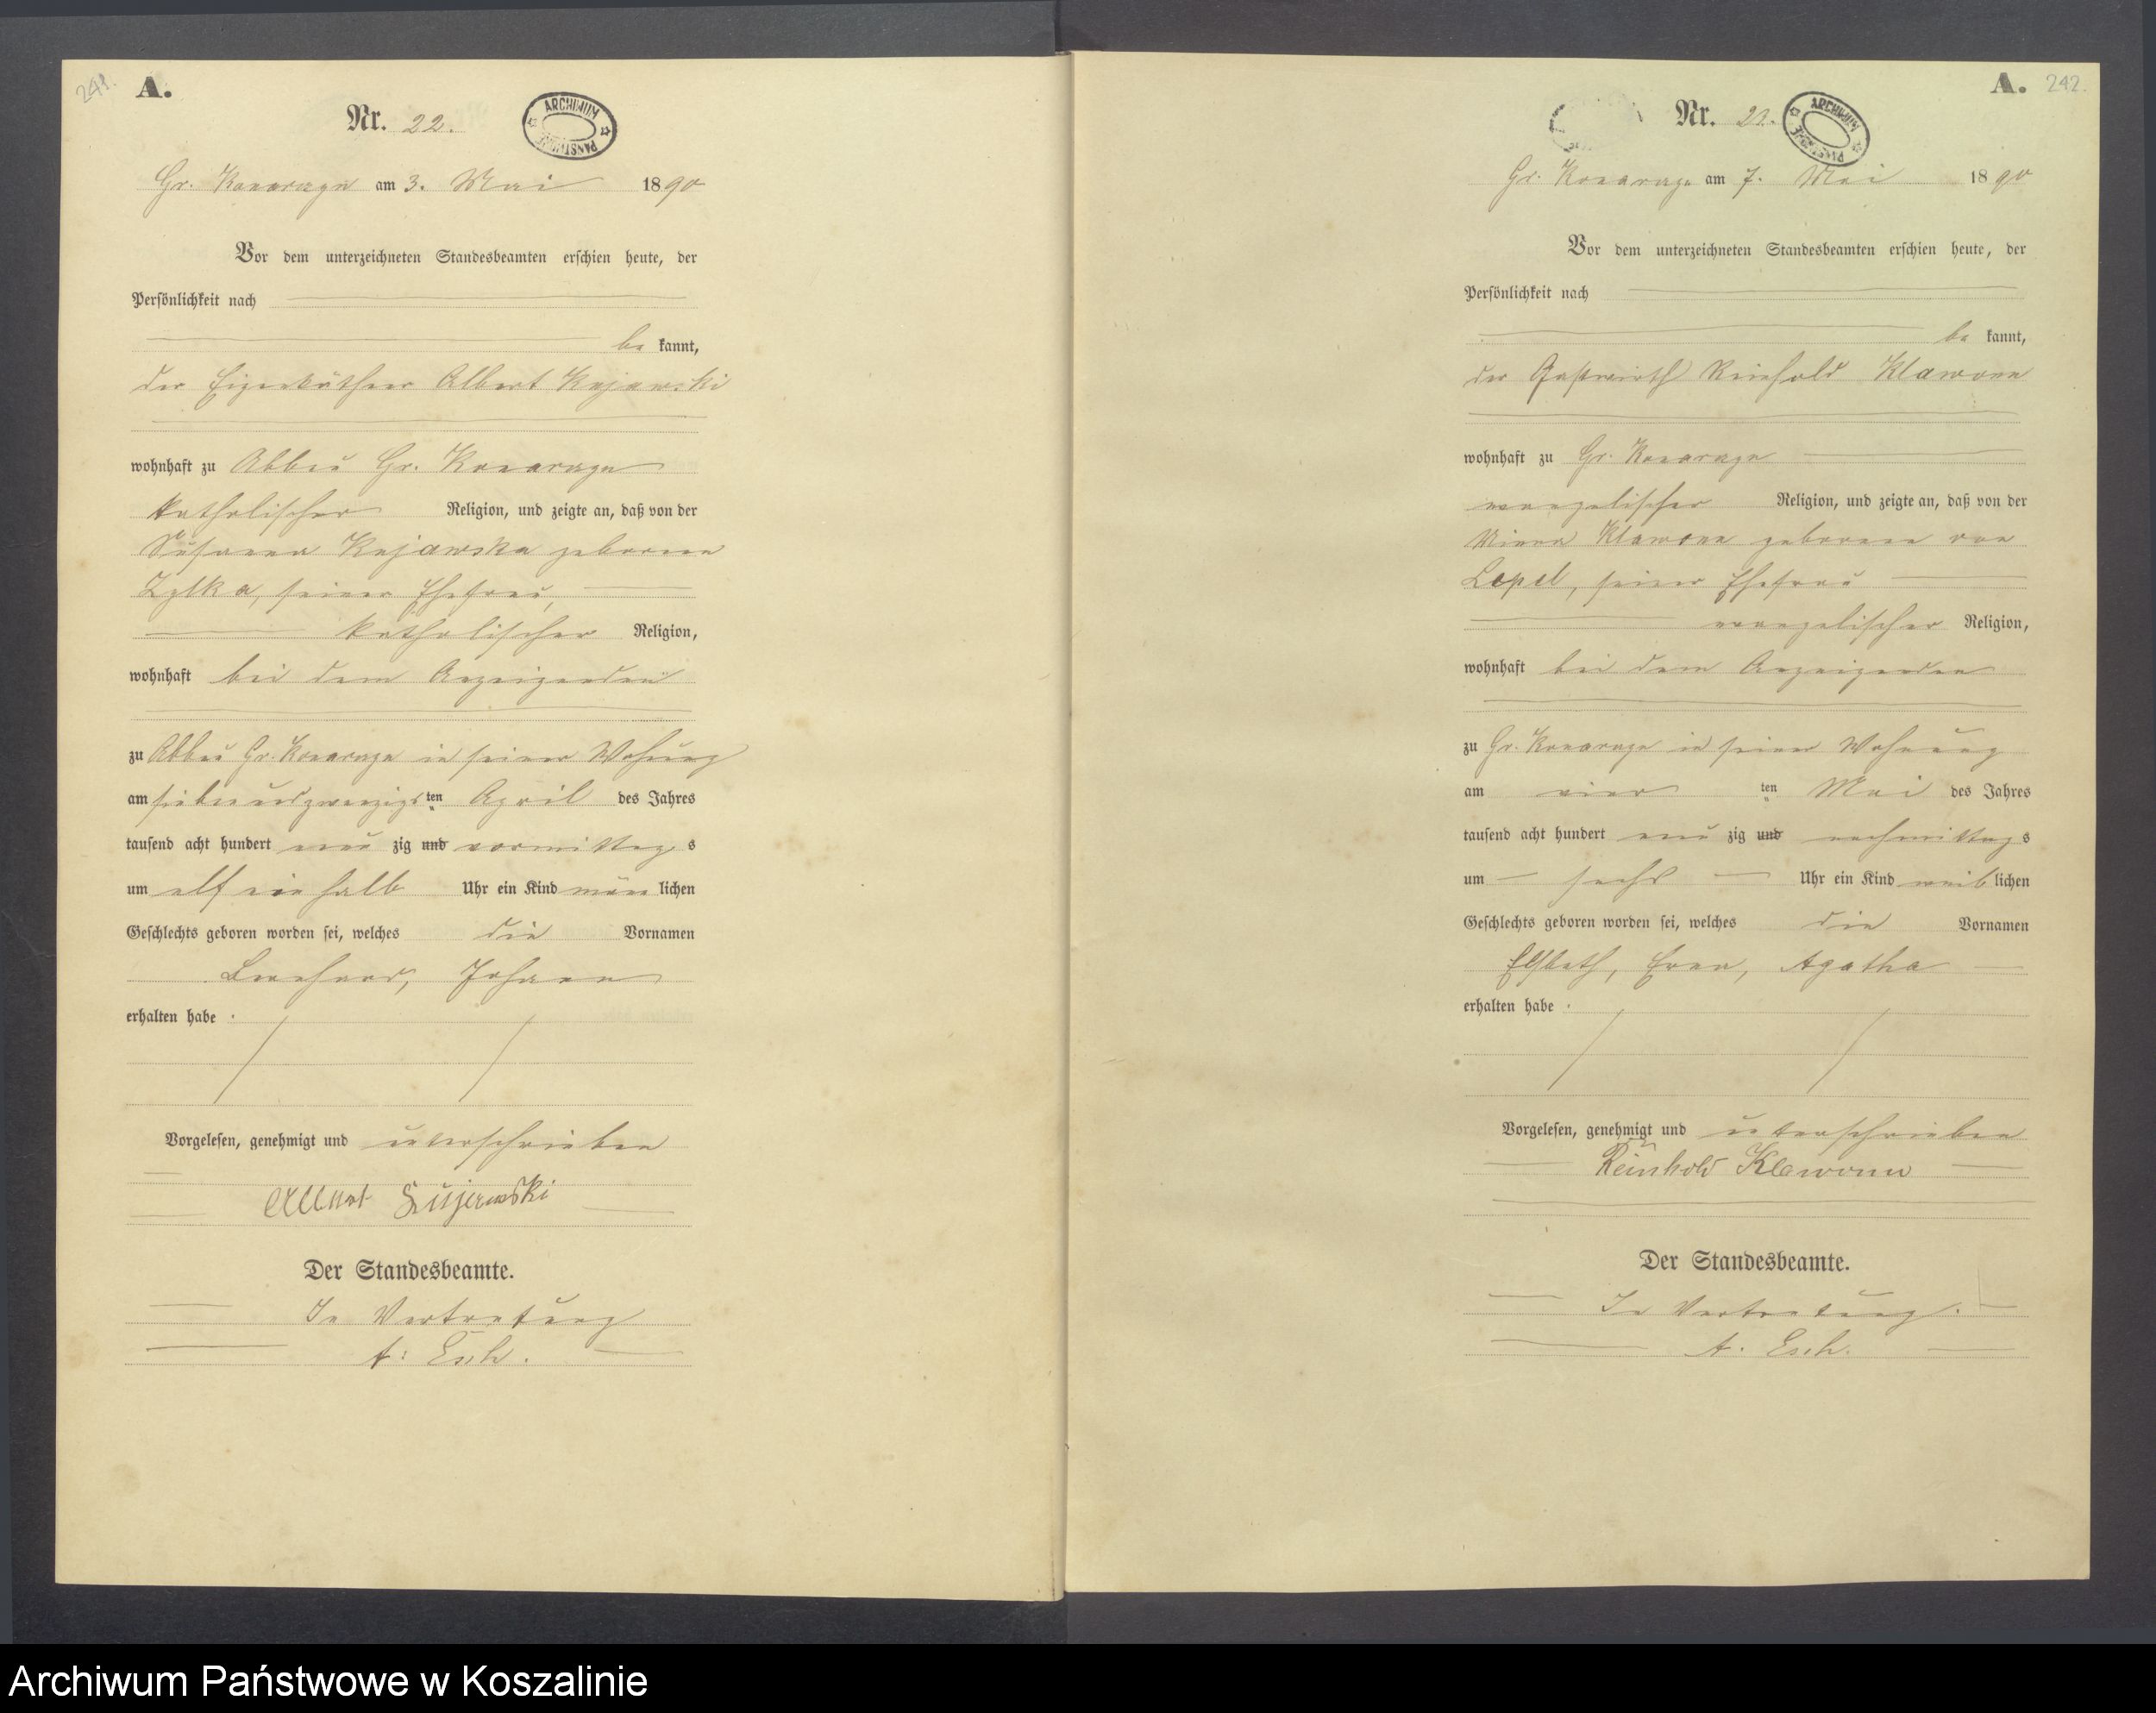 A.
Nr. 22.
ARCHIWUM PAŃSTWOWE
Gr. Konarczyn am 3. Mai 1890
Vor dem unterzeichneten Standesbeamten erschien heute, der
Persönlichkeit nach
be kannt,
der Eigenkäthner Albert Kujawski
wohnhaft zu Abbau Gr. Konarczyn
katholischer Religion, und zeigte an, daß von der
Susanna Kujawska geborene
Zylka, seiner Ehefrau,
katholischer Religion,
wohnhaft bei dem Anzeigenden
zu Abbau Gr. Konarczyn in seiner Wohnung
am siebenundzwanzigsten April des Jahres
tausend acht hundert neun zig und vormittags
um elf ein halb Uhr ein Kind männlichen
Geschlechts geboren worden sei, welches die Vornamen
Bernhard, Johann
erhalten habe .
Vorgelesen, genehmigt und unterschrieben
Albert Kujawski
Der Standesbeamte.
In Vertretung
A: Esch.
A. 242.
Nr.
ARCHIWUM PAŃSTWOWE
Gr. Konarczyn am 7. Mai 1890
Vor dem unterzeichneten Standesbeamten erschien heute, der
Persönlichkeit nach
be kannt,
der Gastwirth Reinhold Klawonn
wohnhaft zu Gr. Konarczyn
evangelischer Religion, und zeigte an, daß von der
Minna Klawonn geborene von
Lepel, seiner Ehefrau
evangelischer Religion,
wohnhaft bei dem Anzeigenden
zu Gr. Konarczyn in seiner Wohnung
am vier ten Mai des Jahres
tausend acht hundert neun zig und nachmittags
um sechs Uhr ein Kind weiblichen
Geschlechts geboren worden sei, welches die Vornamen
Elsbeth, Erna, Agatha
erhalten habe .
Vorgelesen, genehmigt und unterschrieben
Reinhold Klawonn
Der Standesbeamte.
In Vertretung.
A. Esch.
Archiwum Państwowe w Koszalinie